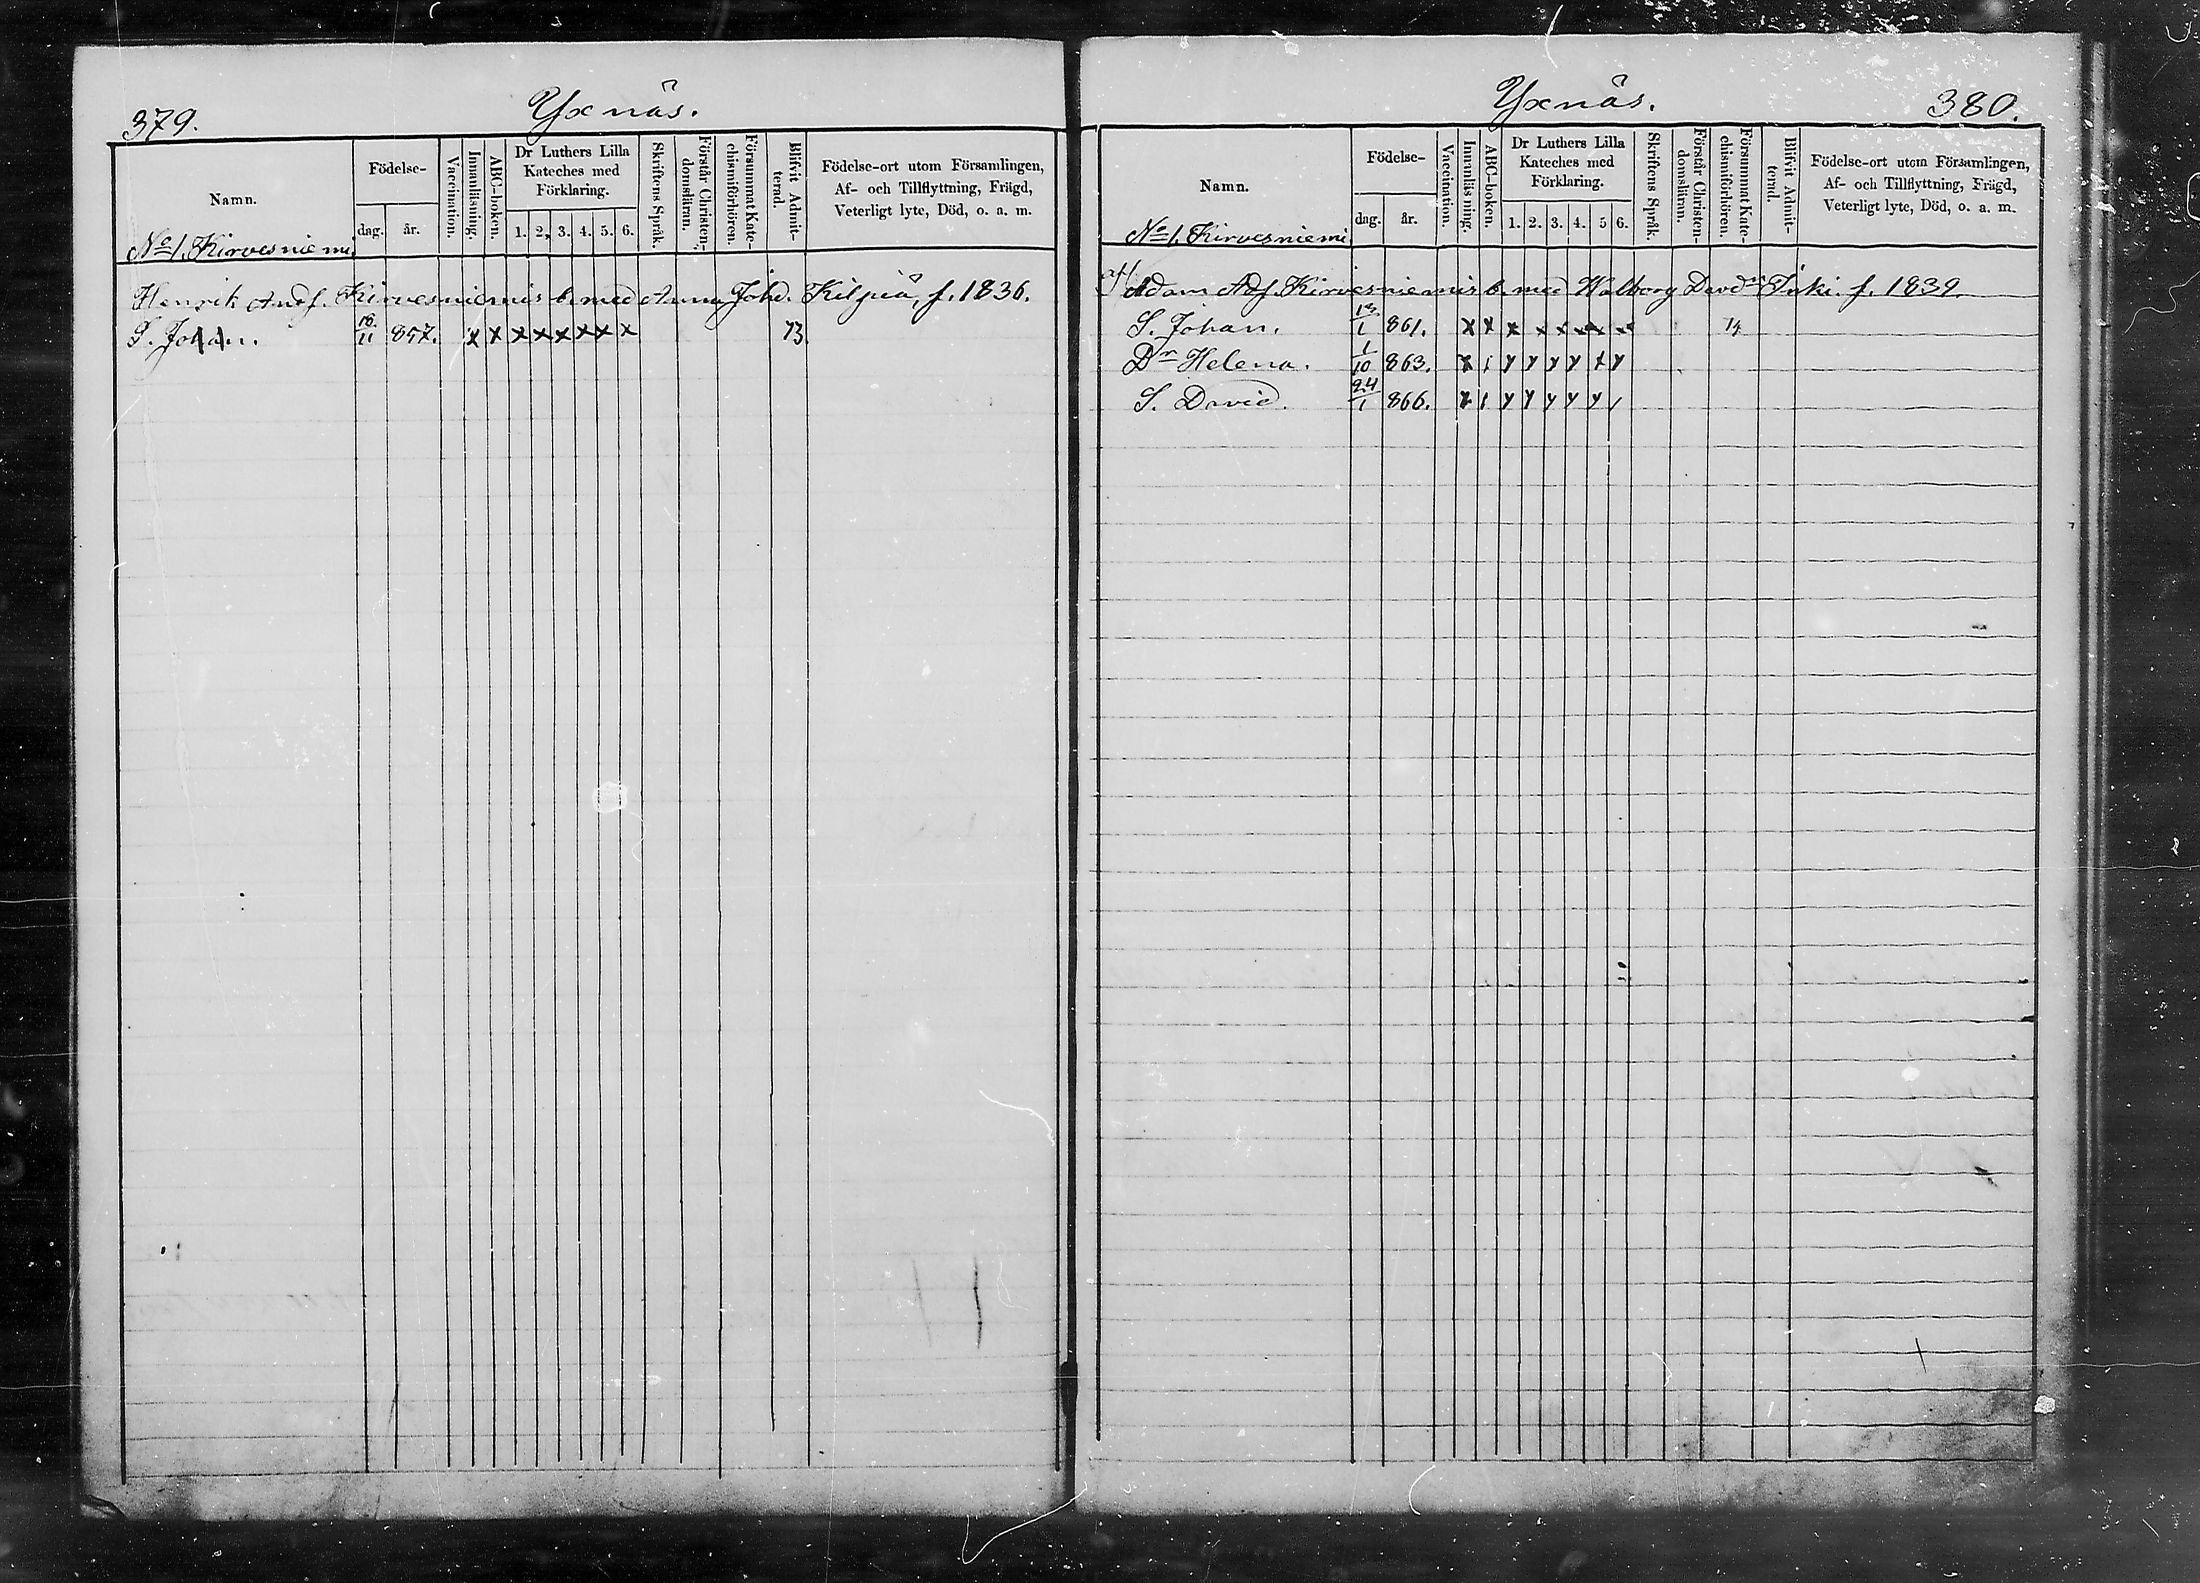 379.
Yxnäs.
Namn.
Födelse-
dag.
år.
Vaccination.
Innanläsning.
ABC-boken.
Dr Luthers Lilla Kateches med Förklaring.
1. 2. 3. 4. 5. 6.
Skriftens Språk.
Förstår Christendomsläran.
Försummat Katechismiförhören.
Blifvit Admitterad.
Födelse-ort utom Församlingen,
Af- och Tillflyttning, Frägd,
Veterligt lyte, Död, o. a. m.
No 1. Kirvesniemi
Henrik Andf. Kirvesniemis b. med Anna Johd. Kilpiä, f. 1836.
S. Johan. 16/11 857. x x x x x x x x 73
Yxnäs.
380.
Namn.
Födelse-
dag.
år.
Vaccination.
Innanläsning.
ABC-boken.
Dr Luthers Lilla Kateches med Förklaring.
1. 2. 3. 4. 5 6.
Skriftens Språk.
Förstår Christendomsläran.
Försummat Katechismiförhören.
Blifvit Admitterad.
Födelse-ort utom Församlingen,
Af- och Tillflyttning, Frägd,
Veterligt lyte, Död, o. a. m.
No 1. Kirvesniemi
Adam Adf. Kirvesniemis b. med Walborg Davdr f. 1839.
S. Johan. 861. x x x x x x x x
Dr Helena. 1/10 863.
S. David. 24/1 866.